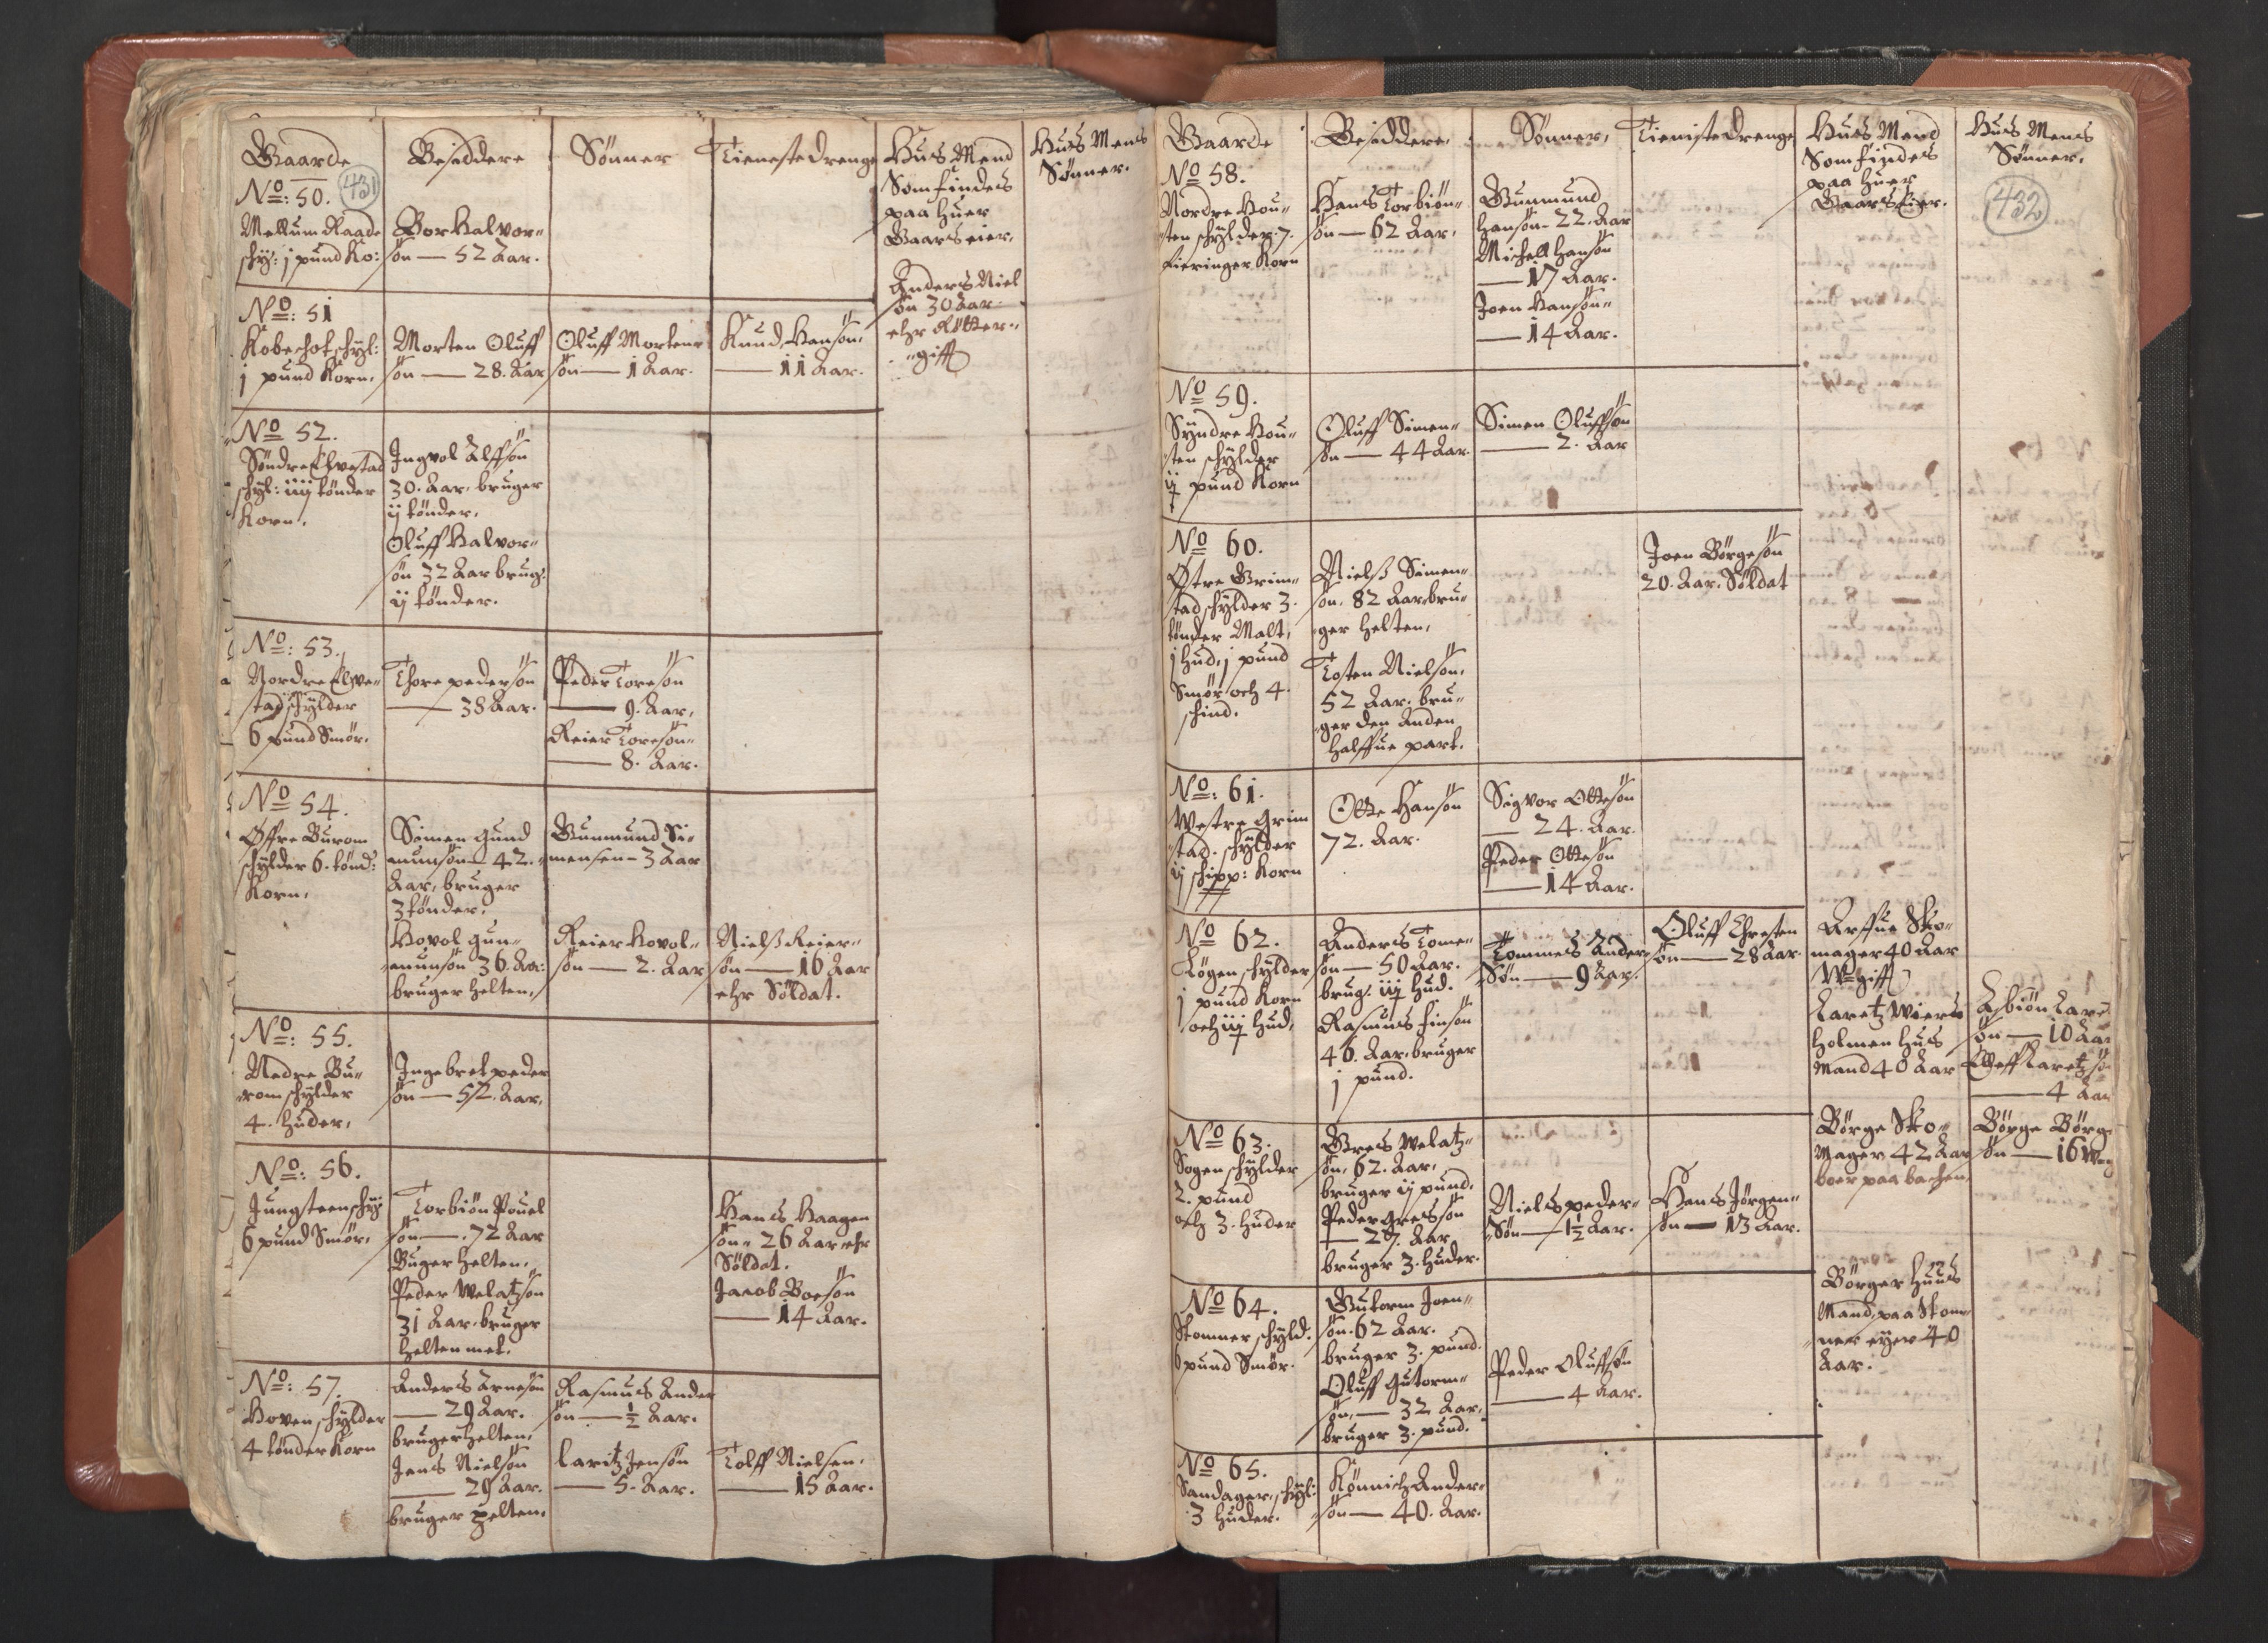 Gaarde
Besiddere
Sønner
Tienestedrenge
Huus Mend
Som findes
paa huer
Gaars eier.
Huus Mens
Sønner.
431
No: 50.
Mellum Raade
schÿ: j pund Ko:
Bor Halvor=
søn — 52 Aar.
Anders Niel
søn 30 Aar
ehr Røtter=
=gifft
No: 51
Kobeshof schÿl:
j pund Korn.
Morten Oluff
søn — 28. Aar
Oluff Mortens
søn — 1 Aar.
Knud Hansøn.
— 11 Aar.
No 52.
Søndre Elvestad
schÿl: iiij tønder
Korn.
Ingvol Alffsøn
30. Aar. bruger
ij tønder.
Oluff Halvor=
søn 32 Aar brug:
ij tønder.
No: 53.
Nordre Elve=
stad schÿlder
6 pund Smør.
Thore pedersøn
— 38 Aar.
Peder Toresøn
— 9. Aar.
Reier Toresøn
— 8. Aar.
No 54.
Øffre Burom
schÿlder 6. tønd:
Korn.
Simen gund
munsøn — 42.
Aar, bruger
3 tønder.
Gunmund Si=
mensen — 3 Aar
Hovol gun=
munsøn 36. Aa:
bruger helten.
Reier Hovol=
søn — 2. Aar
Nielß Reier=
søn — 16 Aar
ehr Søldat.
No: 55.
Nedre Bu=
rom schÿlder
4. huder.
Ingebret peder
søn — 52. Aar.
No: 56.
Jungsteen schÿ:
6 pund Smør.
Torbiøn Pouel
søn — 72 Aar
Buger helten.
Peder Welatzøn
31 Aar. bruger
helten met.
Hans Haagen
søn 26 Aar ehr
Søldat.
Jacob Boesøn
— 14 Aar.
No: 57.
Hoven schÿlder
4 tønder Korn
Anders Arnesøn
— 29 Aar.
bruger helten.
Jens Nielsøn
— 29 Aar.
bruger helten.
Rasmus Ander
søn — ½ Aar.
laritz Jensøn
— 5. Aar.
Tolff Nielsen.
— 15 Aar.
Gaarde
Besiddere.
Sønner.
Tienistedrenge
Huus Mend
Som findes
paa huer
Gaars Eier.
Huus Mens
Sønner.
432
No 58.
Nordre Hou=
sten schÿlder. 7.
fieringer Korn
Hans Torbiøn=
søn — 62 Aar.
Gunmund
hansøn — 22. Aar
Michell hansøn
— 17 Aar.
Joen Hansøn
— 14 Aar.
No 59.
Sÿndre Hou=
sten schÿlder
ij pund Korn
Oluff Simen=
søn — 44 Aar.
Simen Oluffsøn
— 2. Aar
No 60.
Østre Grim=
stad schÿlder 3.
tønder Malt,
j hud, j pund
Smør och 4.
schind.
Nielß Simen=
søn. 82 Aar bru=
ger helten.
Tosten Nielsøn.
52 Aar. bru=
ger den Anden
halffue part.
Joen Børgesøn
20. Aar. Søldat
No: 61.
Westre Grim
stad. schÿlder
ij schipp: Korn
Otte Hansøn
72. Aar.
Sigvor Ottesøn
— 24. Aar.
Peder Ottesøn
— 14 Aar.
No 62.
Løgen schÿlder
j pund Korn
och iij hud.
Anders Tome=
søn — 50 Aar.
brug: iij hud.
Rasmus finsøn
46. Aar. bruger
j pund.
Tommes Ander
Søn — 9 Aar.
Oluff Chresten
søn — 28 Aar.
Arffue Sko=
mager 40 Aar
Wgifft
Laretz Wiers
holmen huus
Mand 40 Aar
Asbiøn Lare
søn — 10 Aar
Eleff Laretz sø
— 4 Aar
No 63.
Sogen schÿlder
2. pund
och 3. huder
Gres Welatz=
søn. 62. Aar.
bruger ij pund.
Peder Gressøn
— 27. Aar
bruger 3. huder.
Niels peder=
Søn — 1½ Aar.
Hans Jørgen=
søn — 13 Aar.
Børge Sko=
Mager 42 Aar
boer paa bachen.
Børge Børg
søn — 16
No 64.
Skomner schÿld.
6 pund Smør.
Gutorm Joen=
søn. 62 Aar.
bruger 3. pund.
Oluff Gutorm=
søn — 32 Aar.
bruger 3. pund.
Peder Oluffsøn
— 4 Aar.
Børger huus
Mand, paa Skom=
ner eÿer 40
Aar.
No 65.
Sandager, schÿl:
3 huder.
Kønnich Ander=
søn — 40. Aar.